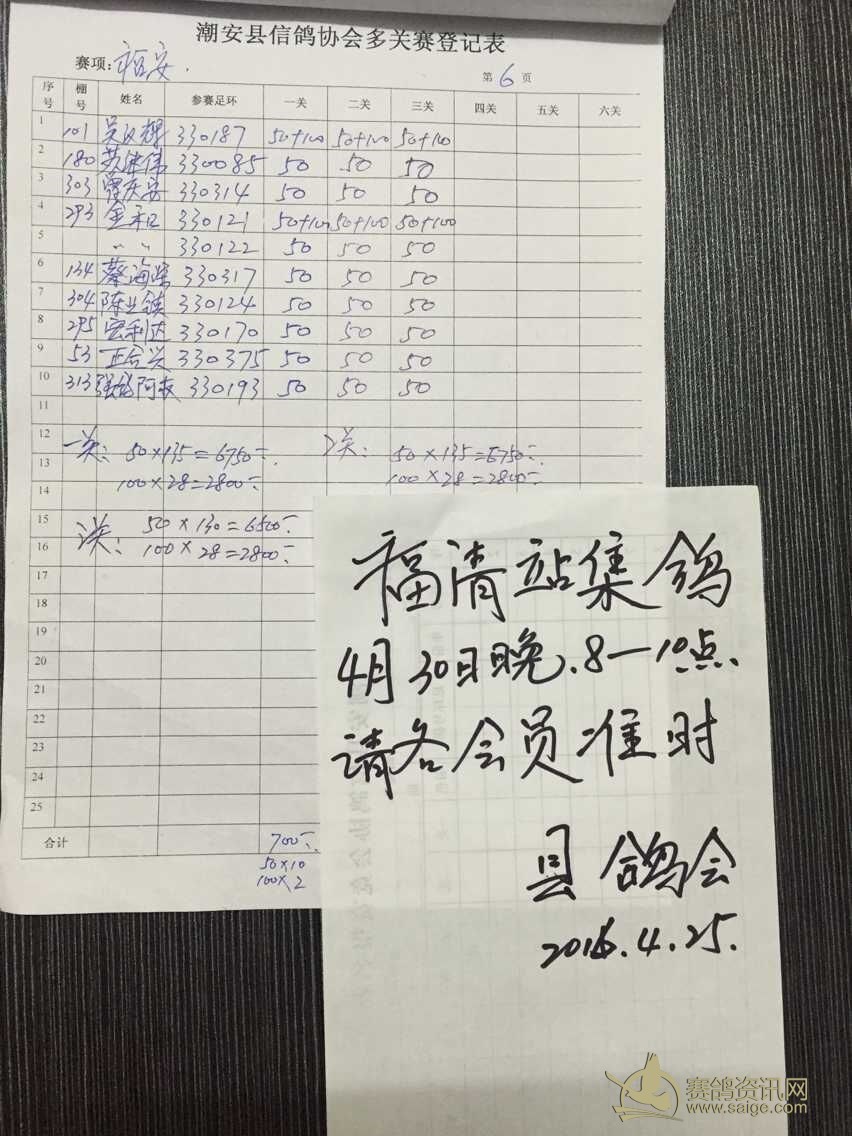 潮安县信鸽协会多关赛登记表
赛项：福安. 第6页
序号 棚号 姓名 参赛足环 一关 二关 三关 四关 五关 六关
1 101 330187 50+100 50+100 50+100
2 180 330085 50 50 50
3 303 曾庆安 330314 50 50 50
4 293 金和 330121 50+100 50+100 50+100
5 〃 〃 330122 50 50 50
6 134 蔡海 330317 50 50 50
7 304 陈业镇 330124 50 50 50
8 295 宏利达 330170 50 50 50
9 53 正合兴 330375 50 50 50
10 313 330193 50 50 50
11
12
13
14
15
16
17
18
19
20
21
22
23
24
25
一关：50×135=6750
100×28=2800
二关：50×135=6750
100×28=2800
三关：50×130=6500
100×28=2800
合计 700
50×10
100×2
福清站集鸽
4月30日晚.8—10点.
请各会员准时
县鸽会
2016.4.25.
赛鸽资讯网
www.saige.com